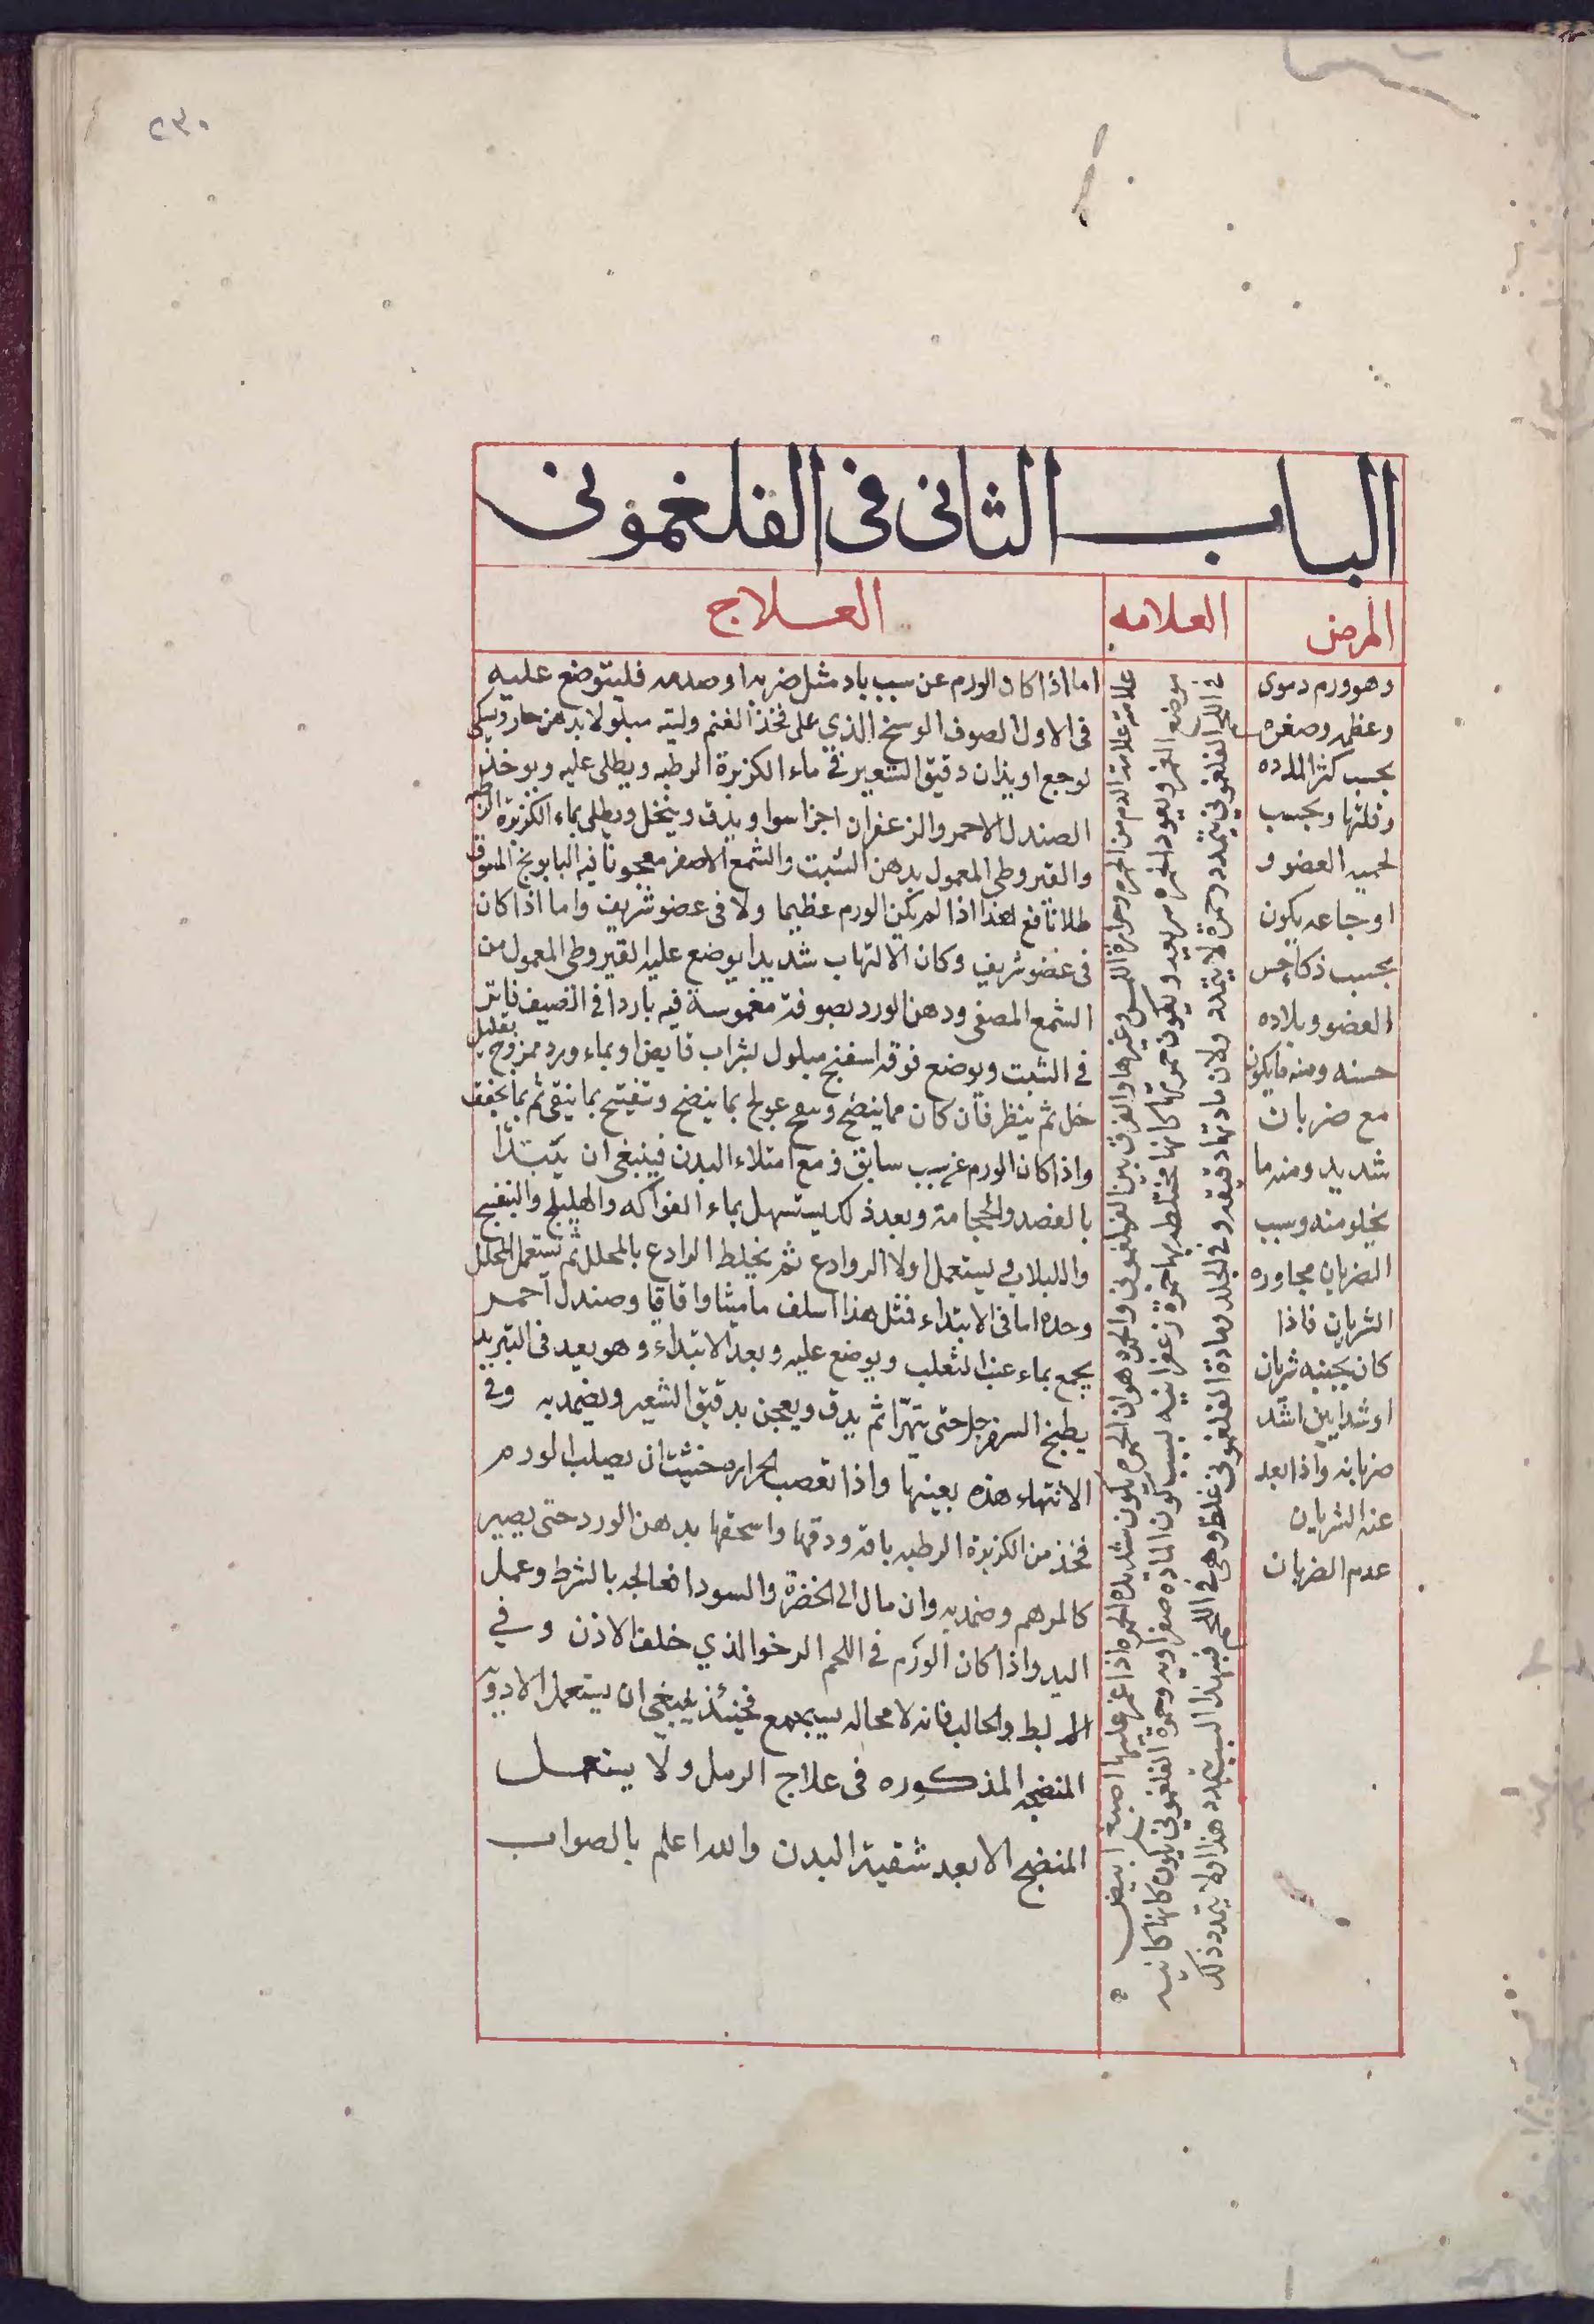 ٢٣٠
الباب الثانى فى الفلغمونى
المرض
العلامه
العلاج
وهو ورم دموى
وعظمه وصغره
بحسب كثرة المادة
وقلتها وبحسب
لحميه العضو و
اوجاعه يكون
بحسب ذكا حس
العضو وبلاده
حسنه ومنه ما يكون
مع ضربات
شديد ومنه ما
يخلو منه وسبب
الضربان مجاوره
الشريان فاذا
كان بجنبه شريان
او شرايين اشتد
ضربانه واذا بعد
عنه الشريان
عدم الضربان
علامته علامة الدم من الحمره وحرارة اللمس وغيرها والفرق بين الفلغمونى والحمره هو ان الحمره يكون شديده الحمره اذا غمز عليها اصبع ابيض
موضع الغمز ويعود الحمره سريعه ويكون حمرتها كانها مختلطه بها حمرة زعفرانيه لسبب كون الماده صفراويه وحمرة الفلغمونى يكون كانها كانيه
فى اللحم الفلغمونى يتمدد وحمرة لا يتمدد ولان مادتها دقيقه وفى الجلد ومادة الفلغمونى غلظ وهى فى اللحم فبهذا السبب يتمدد هذا ولا يتمدد ذلك
اما اذا كان الورم عن سبب باد مثل ضربه او صدمه فليتوضع عليه
فى الاول الصوف الوسخ الذي على فخذ الغنم وليته مبلولا بدهن حار ويسكن
لوجع او يذاب دقيق الشعير فى ماء الكزبرة الرطبه ويطلى عليه ويوخذ
الصندل الاحمر والزعفران اجزا سوا ويدق وينخل ويطلى بماء الكزبرة الرطبه
والقيروطى المعمول بدهن الشبت والشمع الاصفر معجونا فيه البابونج المدقوق
طلا نافع هذا اذا لم يكن الورم عظيما ولا فى عضو شريف واما اذا كان
فى عضو شريف وكان الالتهاب شديدا يوضع عليه القيروطى المعمول من
الشمع المصفى ودهن الورد بصوفة مغموسة فيه باردا فى الصيف فاتر
فى الشبت ويوضع فوقه اسفنج مبلول بشراب قابض او بماء ورد ممزوج بقليل
خل ثم ينظر فان كان مما ينضج ويفتح عولج بما ينضج وتفتيح بما ينقى ثم بما يجفف
واذا كان الورم عن سبب سابق فمع امتلاء البدن فينبغى ان يبتدأ
بالفصد والحجامة وبعد ذلك يستسهل بماء الفواكه والهليلج والبنفسج
واللبلاب فى يستعمل اولا الروادع ثم يخلط الرادع بالمحلل ثم يستعمل المحلل
وحده اما فى الابتداء فمثل هذا اسلف ماميثا واقاقيا وصندل احمر
يجمع بماء عنب الثعلب ويوضع عليه وبعد الابتداء وهو بعيد فى التبريد
يطبخ السفرجل حتى يتهرّا ثم يدق ويعجن بدقيق الشعير ويضمد به وفى
الانتهاء هذه بعينها واذا تعصب الحراره خشيت ان يصلب الورم
فخذ من الكزبرة الرطبه باقه ودقها واسحقها بدهن الورد حتى يصير
كالمرهم وضمد به وان مال الى الخضرة والسودا فعالجه بالشرط وعمل
اليد واذا كان الورم فى اللحم الرخو الذي خلف الاذن وفي
الابط والحالب فانه لا محاله سيجمع فحينئذ ينبغى ان يستعمل الادوية
المنضجه المذكوره فى علاج الرمل ولا يستعمل
المنضج الا بعد تنقية البدن والله اعلم بالصواب